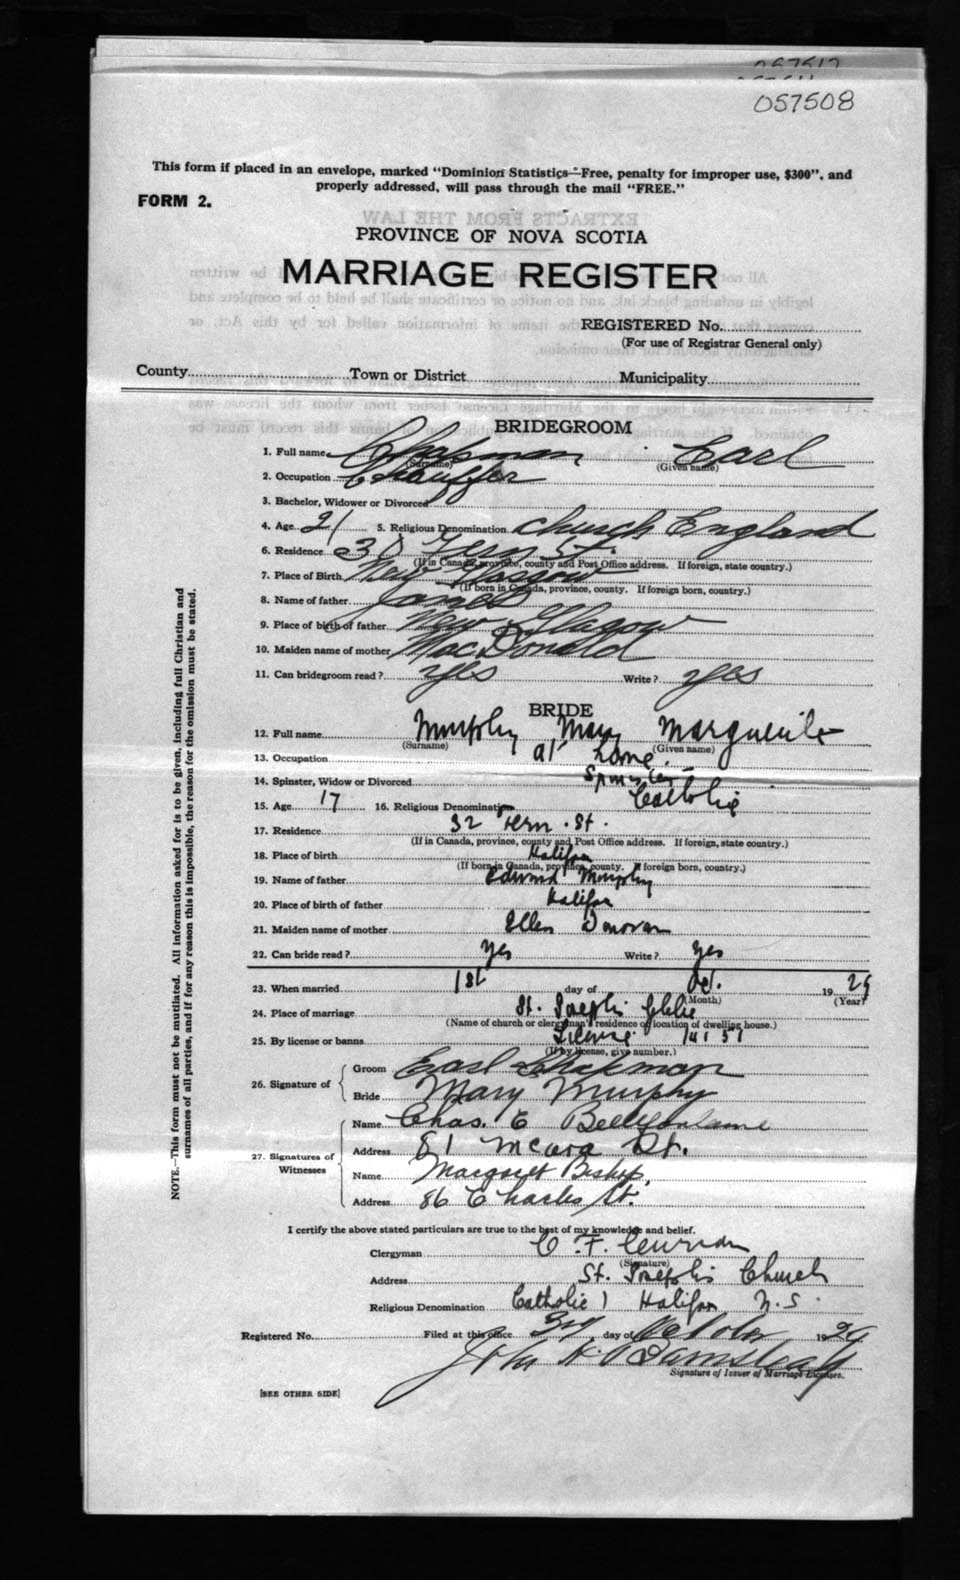 057508
This form if placed in an envelope, marked "Dominion Statistics—Free, penalty for improper use, $300", and
properly addressed, will pass through the mail "FREE."
FORM 2.
PROVINCE OF NOVA SCOTIA
MARRIAGE REGISTER
REGISTERED No.
(For use of Registrar General only)
County Town or District Municipality
BRIDEGROOM
1. Full name Chapman Earl
(Surname) (Given name)
2. Occupation Chauffer
3. Bachelor, Widower or Divorced
4. Age 21 5. Religious Denomination Church England
6. Residence Fern St.
(If in Canada, province, county and Post Office address. If foreign, state country.)
7. Place of Birth New Glasgow
(If born in Canada, province, county. If foreign born, country.)
8. Name of father James
9. Place of birth of father New Glasgow
10. Maiden name of mother MacDonald
11. Can bridegroom read? yes Write? yes
BRIDE
12. Full name Murphy Mary Marguerite
(Surname) (Given name)
13. Occupation at home.
14. Spinster, Widow or Divorced Spinster
15. Age 17 16. Religious Denomination Catholic
17. Residence 32 Fern St.
(If in Canada, province, county and Post Office address. If foreign, state country.)
18. Place of birth Halifax
(If born in Canada, province, county. If foreign born, country.)
19. Name of father Edward Murphy
20. Place of birth of father Halifax
21. Maiden name of mother Ellen Donovan
22. Can bride read? Yes Write? Yes
23. When married 1st day of Oct. 1929
(Month) (Year)
24. Place of marriage St. Joseph's Glebe
(Name of church or clergyman's residence or location of dwelling house.)
25. By license or banns License 14151
(If by license, give number.)
26. Signature of
Groom Earl Chapman
Bride Mary Murphy
27. Signatures of Witnesses
Name Chas. E Bellefontaine
Address 81 McCara St.
Name Margaret Bishop.
Address 86 Charles St.
I certify the above stated particulars are true to the best of my knowledge and belief.
Clergyman C. F. Curran
(Signature)
Address St. Joseph's Church
Religious Denomination Catholic) Halifax N.S.
Registered No. Filed at this office 3rd day of October 1929
John H Barnstead
Signature of Issuer of Marriage Licenses.
[SEE OTHER SIDE]
NOTE.—This form must not be mutilated. All information asked for is to be given, including full Christian and
surnames of all parties, and if for any reason this is impossible, the reason for the omission must be stated.